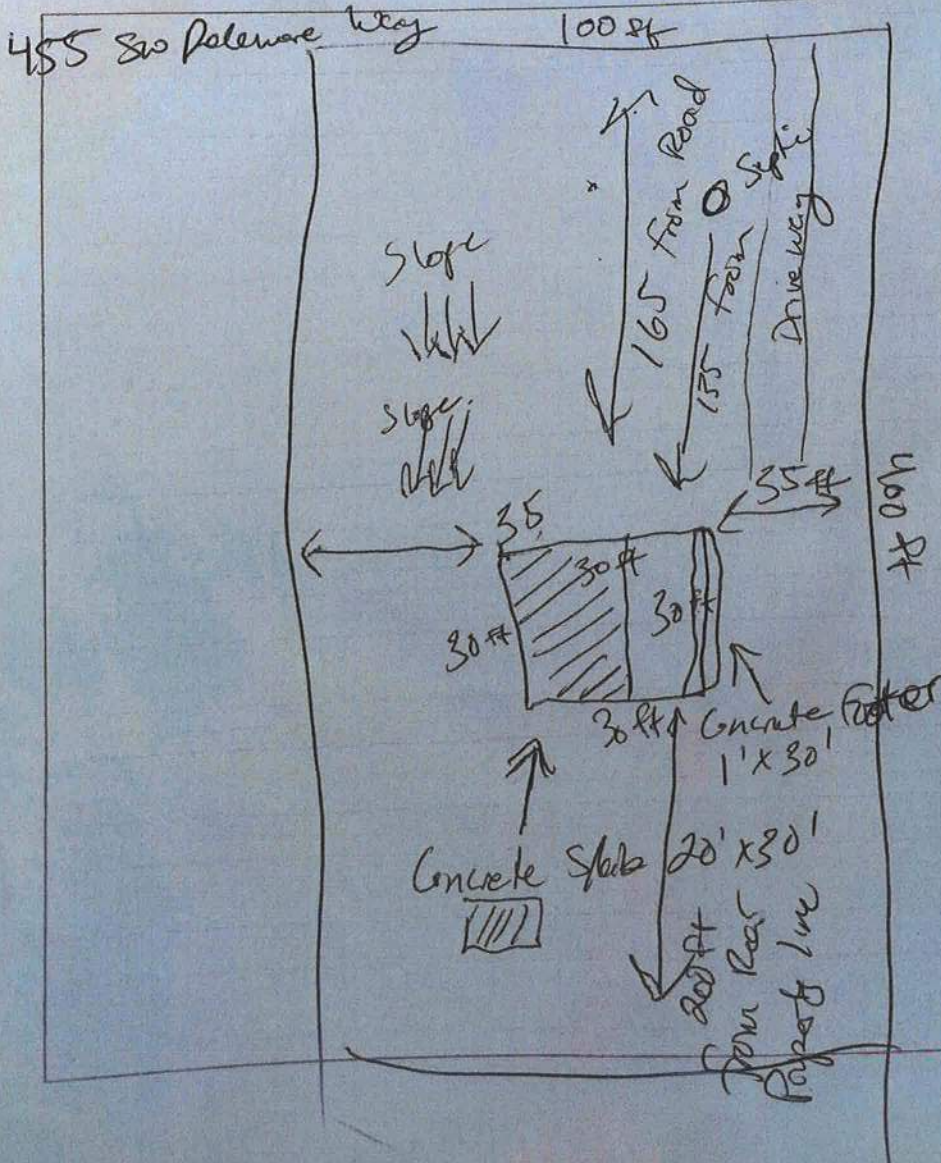 455 SW Delemare Way
100 ft
165 from Road
135 from Septi
Driveway
Slope
Slope
35
35 ft
400 ft
30 ft
30 ft
30 ft
30 ft
Concrete Footer
1' x 30'
Concrete Slab 20' x 30'
200 ft
from Rear
Property line